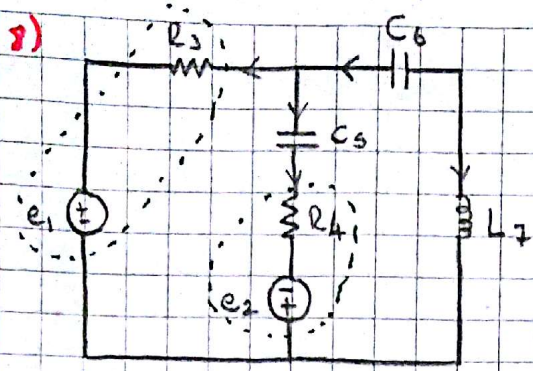 8)
R3
C6
C5
e1
±
R4
L7
e2
-
+